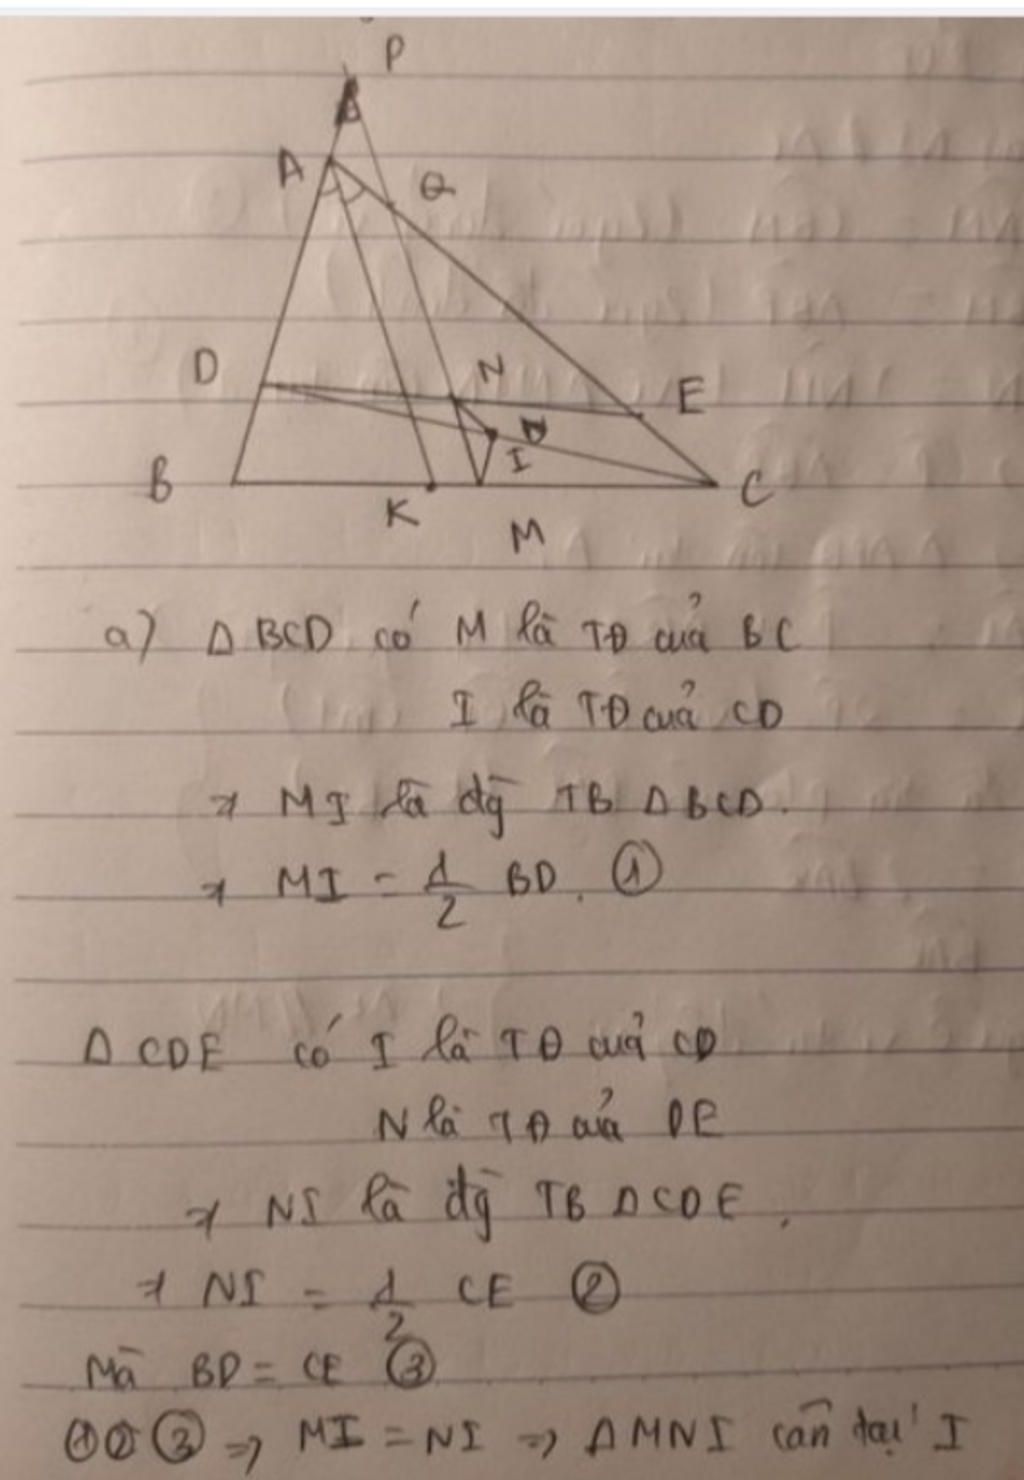 P
A
Q
D
N
E
I
B
K
M
C
a) Δ BCD có M là TĐ của BC
I là TĐ của CD
=> MI là đg TB Δ BCD.
=> MI = 1/2 BD. ①
Δ CDE có I là TĐ của CD
N là TĐ của DE
=> NI là đg TB Δ CDE.
=> NI = 1/2 CE ②
Mà BD = CE ③
①② ③ => MI = NI => Δ MNI cân tại I